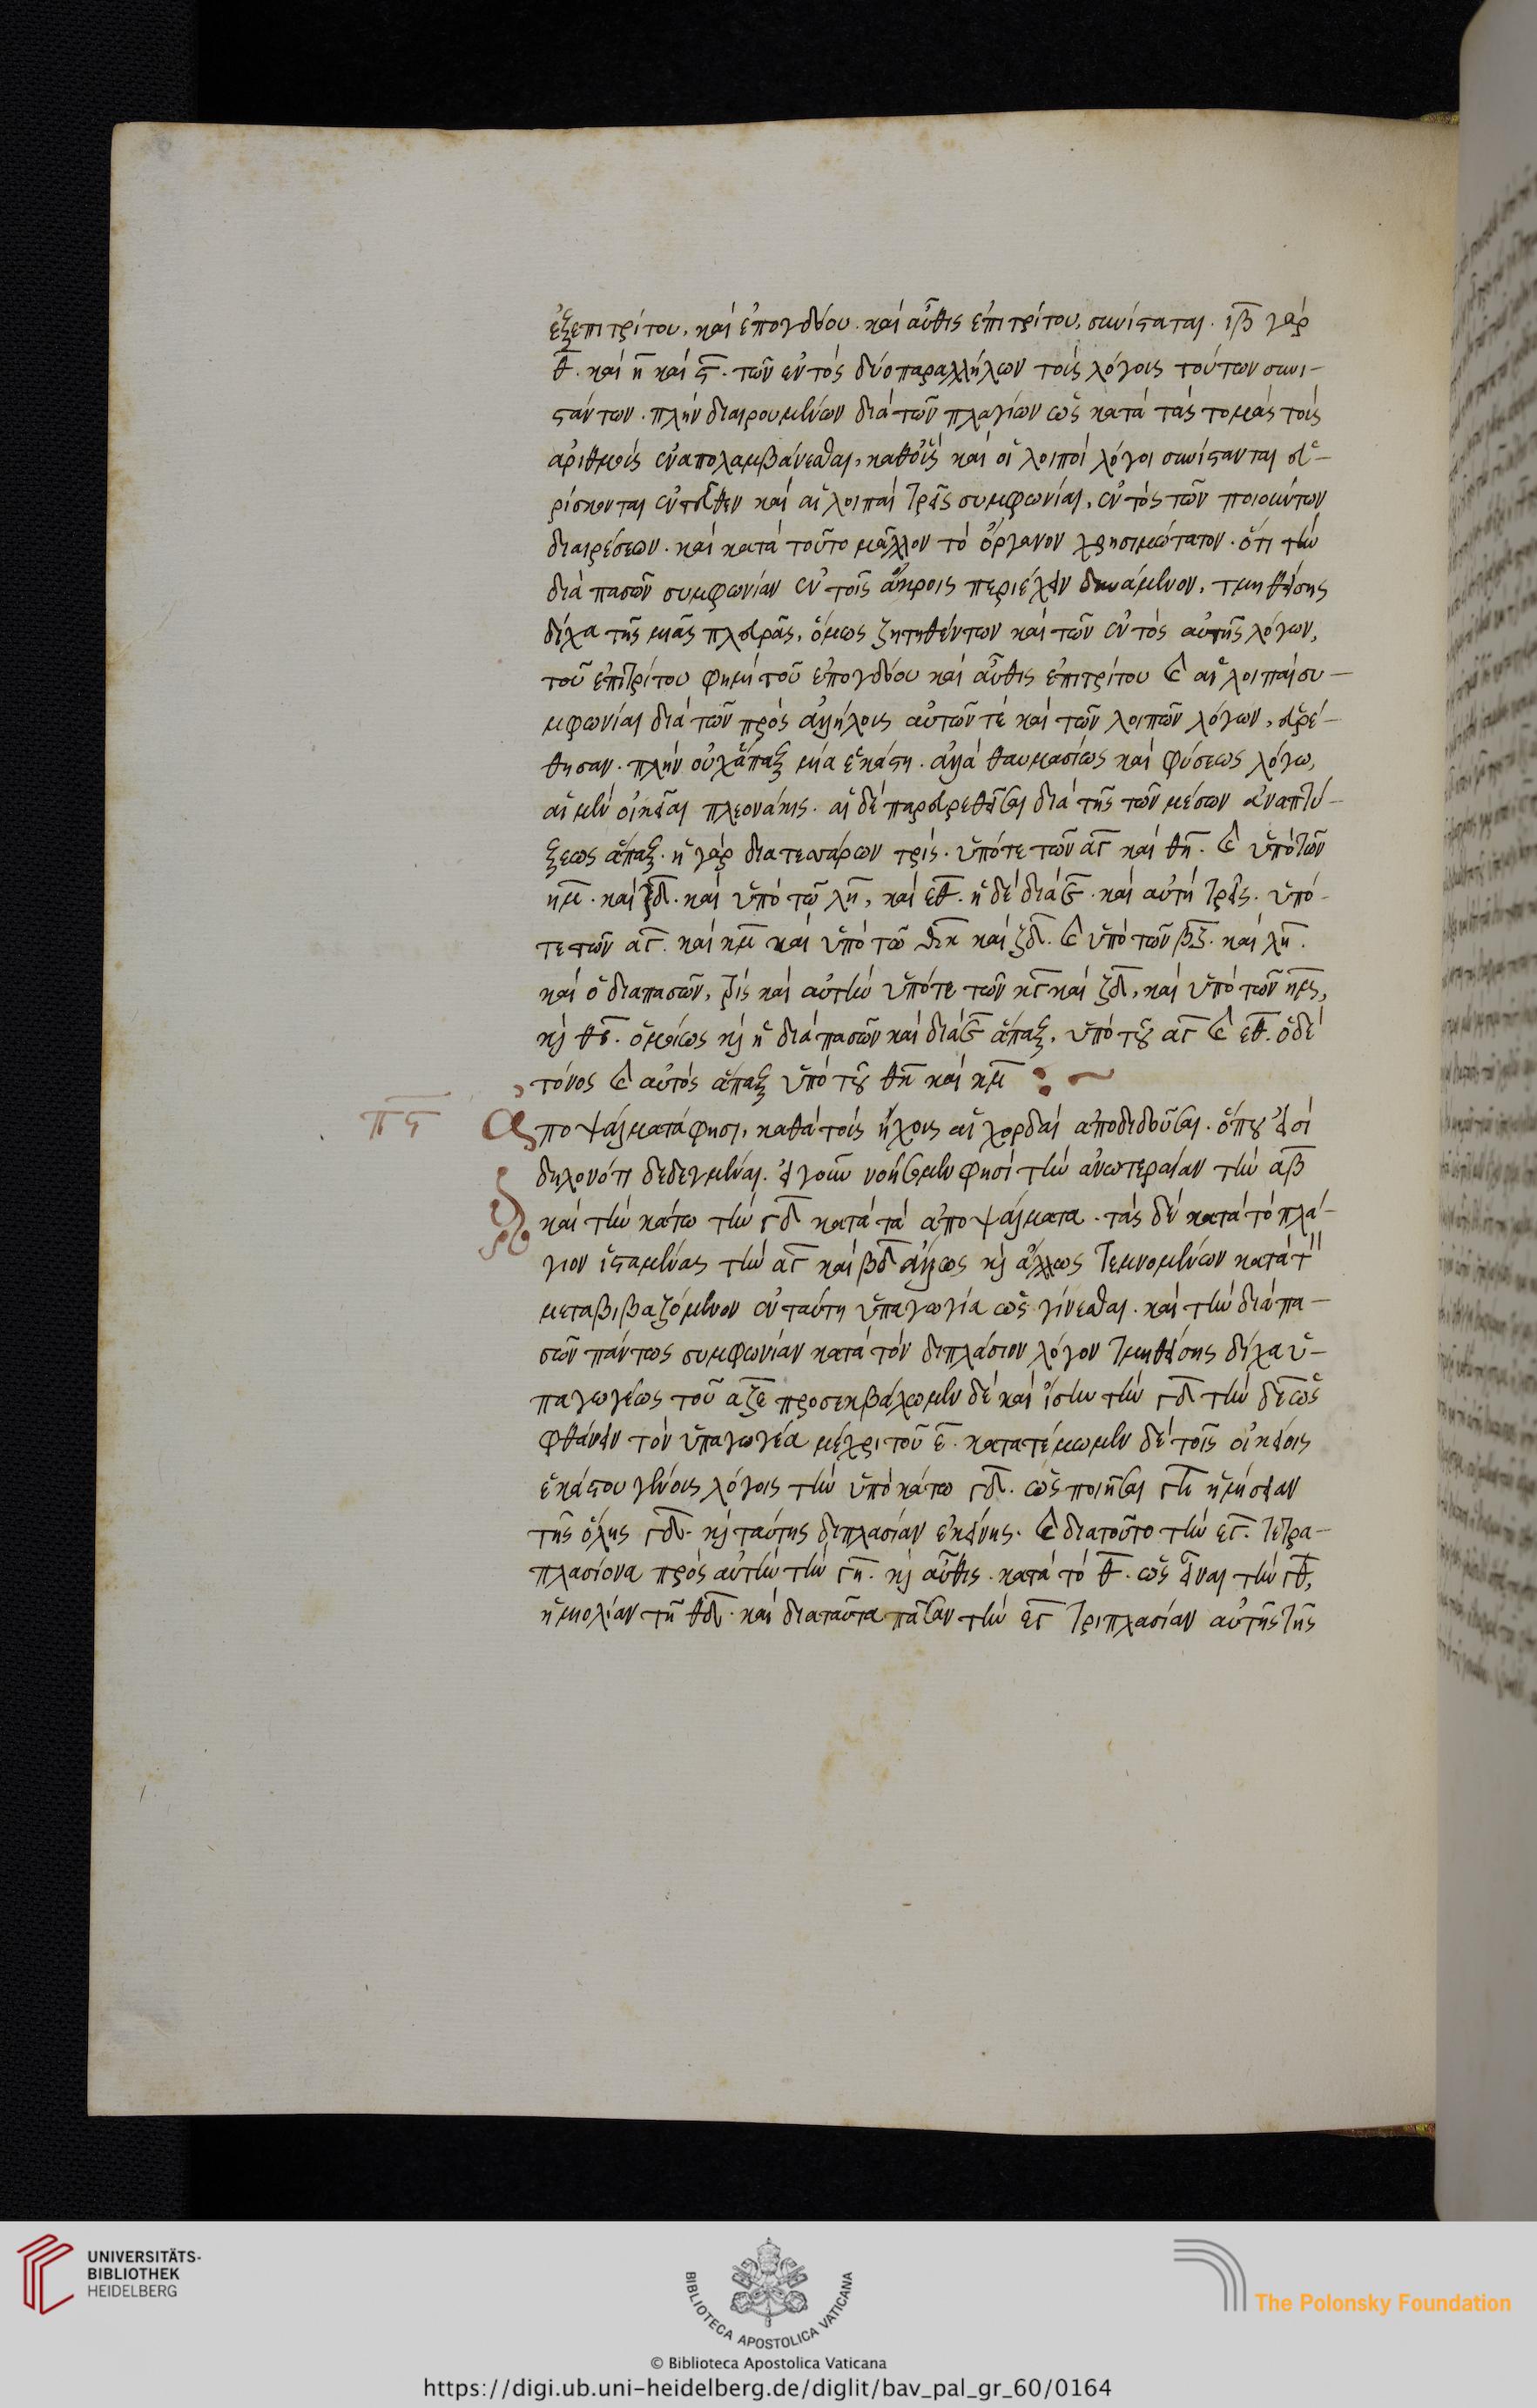 ἐξεπιτρίτου, καὶ ἐπογδόου. καὶ αὖθις ἐπιτρίτου, συνίσταται. ιβ γὰρ
θ. καὶ η καὶ ς. τῶν ἐντὸς δύο παραλλήλων τοῖς λόγοις τούτων συνι-
στάντων. πλὴν διαιρουμένων διὰ τῶν πλαγίων ὡς κατὰ τὰς τομὰς τοῖς
ἀριθμοῖς ἐναπολαμβάνεσθαι, καθ' οὓς καὶ οἱ λοιποὶ λόγοι συνίστανται εὑ-
ρίσκονται ἐντεῦθεν καὶ αἱ λοιπαὶ τρεῖς συμφωνίαι, ἐντὸς τῶν ποιούντων
διαιρέσεων. καὶ κατὰ τοῦτο μᾶλλον τὸ ὄργανον χρησιμώτατον. ὅτι τὴν
διὰ πασῶν συμφωνίαν ἐν τοῖς ἄκροις περιέχειν δυνάμενον, τμηθείσης
δίχα τῆς μιᾶς πλευρᾶς, ὅμως ζητηθέντων καὶ τῶν ἐντὸς αὐτῆς λόγων,
τοῦ ἐπιτρίτου φημὶ τοῦ ἐπογδόου καὶ αὖθις ἐπιτρίτου καὶ αἱ λοιπαὶ συ-
μφωνίαι διὰ τῶν πρὸς ἀλλήλους αὐτῶν τε καὶ τῶν λοιπῶν λόγων, εὑρέ-
θησαν. πλὴν οὐχ ἅπαξ μία ἑκάστη. ἀλλὰ θαυμασίως καὶ φύσεως λόγω,
αἱ μὲν οἰκεῖαι πλεονάκις. αἱ δὲ παρευρεθεῖσαι διὰ τῆς τῶν μέσων ἀναπτύ-
ξεως ἅπαξ. ἡ γὰρ διατεσσάρων τρίς. ὑπό τε τῶν αγ καὶ θη. καὶ ὑπὸ τῶν
ημ. καὶ ζδ. καὶ ὑπὸ τῶν λη, καὶ εθ. ἡ δὲ διὰ ε. καὶ αὐτὴ τρεῖς. ὑπό-
τε τῶν αγ. καὶ κμ καὶ ὑπὸ τῶν θκ καὶ ζδ. καὶ ὑπὸ τῶν βζ. καὶ λη.
καὶ ὁ διαπασῶν, τρὶς καὶ αὐτὴν ὑπό τε τῶν κγ καὶ ζδ, καὶ ὑπὸ τῶν ημς,
καὶ θε. ὁμοίως καὶ ἡ διὰ πασῶν καὶ διὰ ε ἅπαξ, ὑπὸ τοῦ αγ καὶ εθ. ὁ δὲ
τόνος καὶ αὐτὸς ἅπαξ ὑπὸ τοῦ θη καὶ κμ :~
πς
Ἀποψάλματα φησι, καθὰ τοῖς ἤχοις αἱ χορδαὶ ἀποδιδοῦσαι. ὅπου εἰσὶ
δηλονότι δεδεγμέναι. εἰ γοῦν νοήσωμεν φησὶ τὴν ἀνωτεραίαν τὴν αβ
καὶ τὴν κάτω τὴν γδ κατὰ τὰ ἀποψάλματα. τὰς δὲ κατὰ τὸ πλά-
γιον ἱσταμένας τὴν αγ καὶ βδ ἄλλως καὶ ἄλλως τεμνομένων κατὰ τ
μεταβιβαζόμενον ἐν ταύτη ὑπαγωγία ὡς γίνεσθαι. καὶ τὴν διὰ πα-
σῶν πάντως συμφωνίαν κατὰ τὸν διπλάσιον λόγον τμηθείσης δίχα ὑ-
παγωγέως τοῦ αζε προσεκβάλωμεν δὲ καὶ ἴσην τὴν γδ τὴν δε ὡς
φθάνειν τὸν ὑπαγωγέα μέχρι τοῦ ε. κατατέμωμεν δὲ τοῖς οἰκείοις
ἑκάστου γένους λόγοις τὴν ὑποκάτω γδ. ὡς ποιῆσαι γη ἡμίσειαν
τῆς ὅλης γδ. καὶ ταύτης διπλασίαν ἐκείνης. καὶ διατοῦτο τὴν εγ. τετρα-
πλασίονα πρὸς αὐτὴν τὴν γη. καὶ αὖθις. κατὰ τὸ θ. ὡς εἶναι τὴν γθ,
ἡμιολίαν τῆ θδ. καὶ διαταῦτα πᾶσαν τὴν εγ τριπλασίαν αὐτῆς τῆς
UNIVERSITÄTS-
BIBLIOTHEK
HEIDELBERG
BIBLIOTECA APOSTOLICA VATICANA
The Polonsky Foundation
© Biblioteca Apostolica Vaticana
https://digi.ub.uni-heidelberg.de/diglit/bav_pal_gr_60/0164